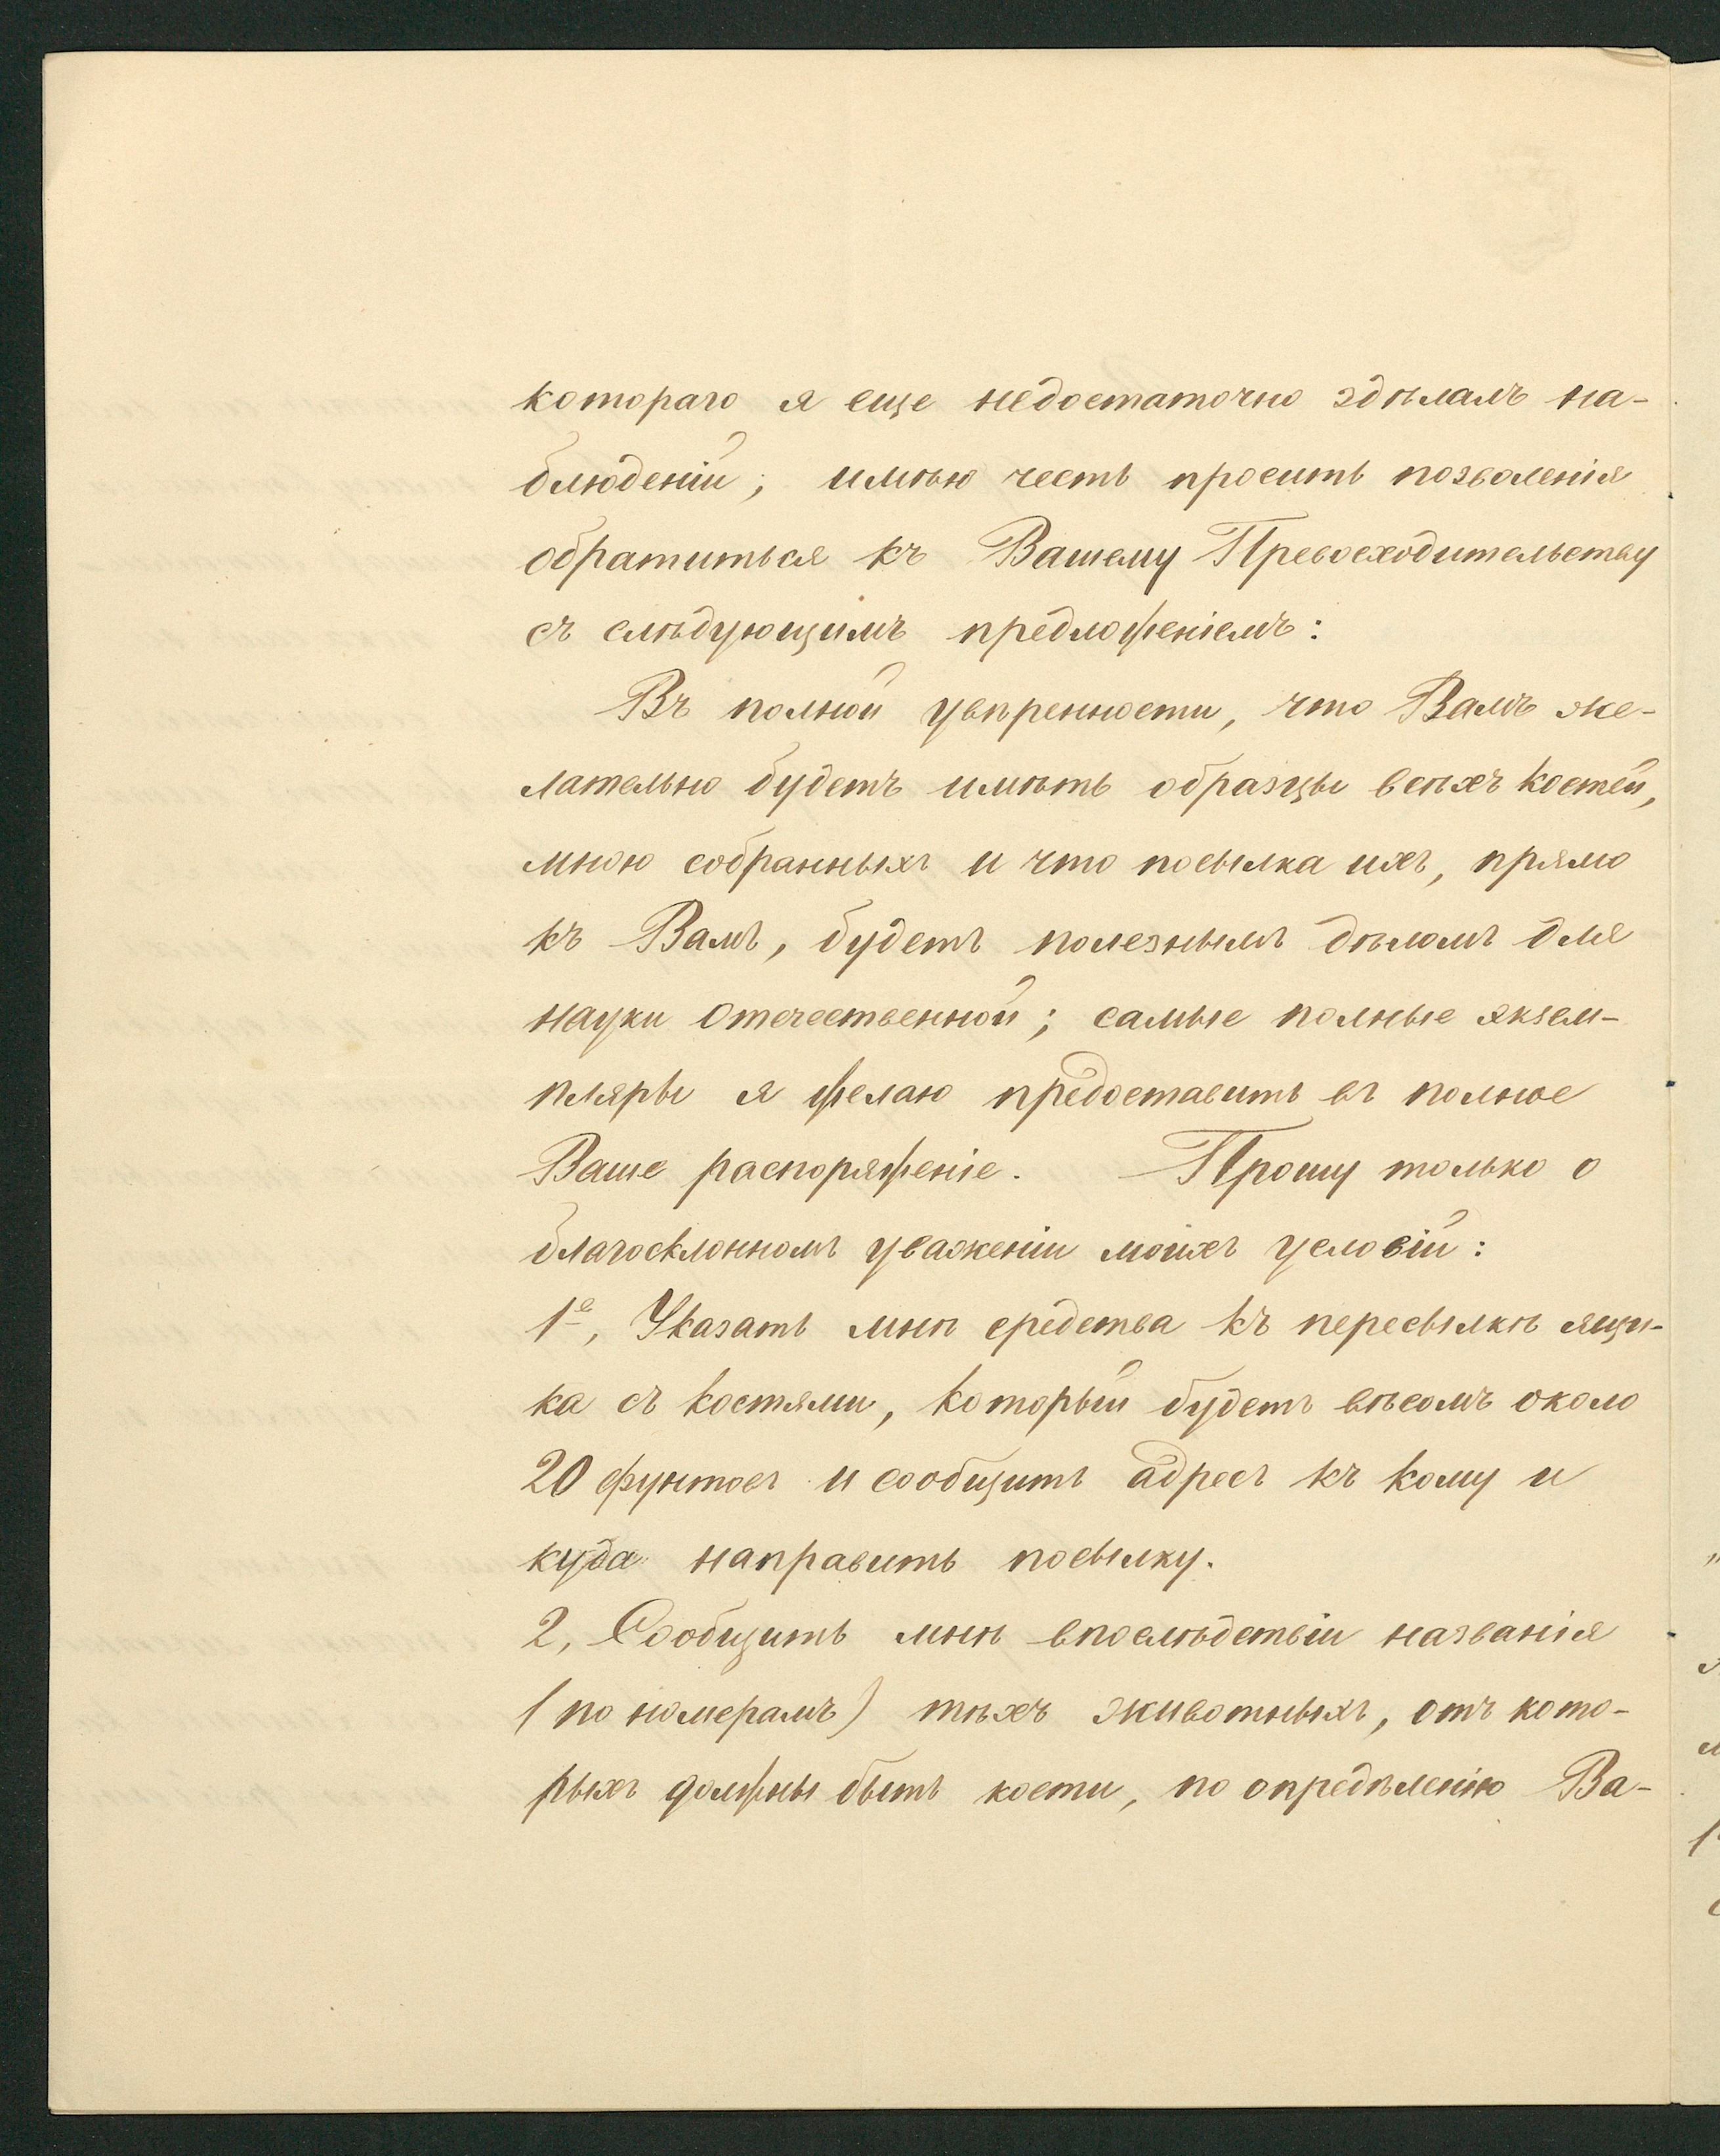 котораго я еще недостаточно здѣлалъ на-
блюденій; имѣю честь просить позволенія
обратиться къ Вашему Превосходительству
съ слѣдующимъ предложеніемъ:
Въ полной увѣренности, что Вамъ же-
лательно будетъ имѣть образцы всѣхъ костей,
мною собранныхъ и что посылка ихъ, прямо
къ Вамъ, будетъ полезнымъ дѣломъ для
науки отечественной; самые полные экзем-
пляры я желаю предоставить въ полное
Ваше распоряженіе. Прошу только о
благосклонномъ уваженіи моихъ условій:
1е, Указать мнѣ средства къ пересылкѣ ящи-
ка съ костями, который будетъ вѣсомъ около
20 фунтовъ и сообщить адресъ къ кому и
куда направить посылку.
2, Сообщить мнѣ впослѣдствіи названія
(по номерамъ) тѣхъ животныхъ, отъ кото-
рыхъ должны быть кости, по опредѣленію Ва-